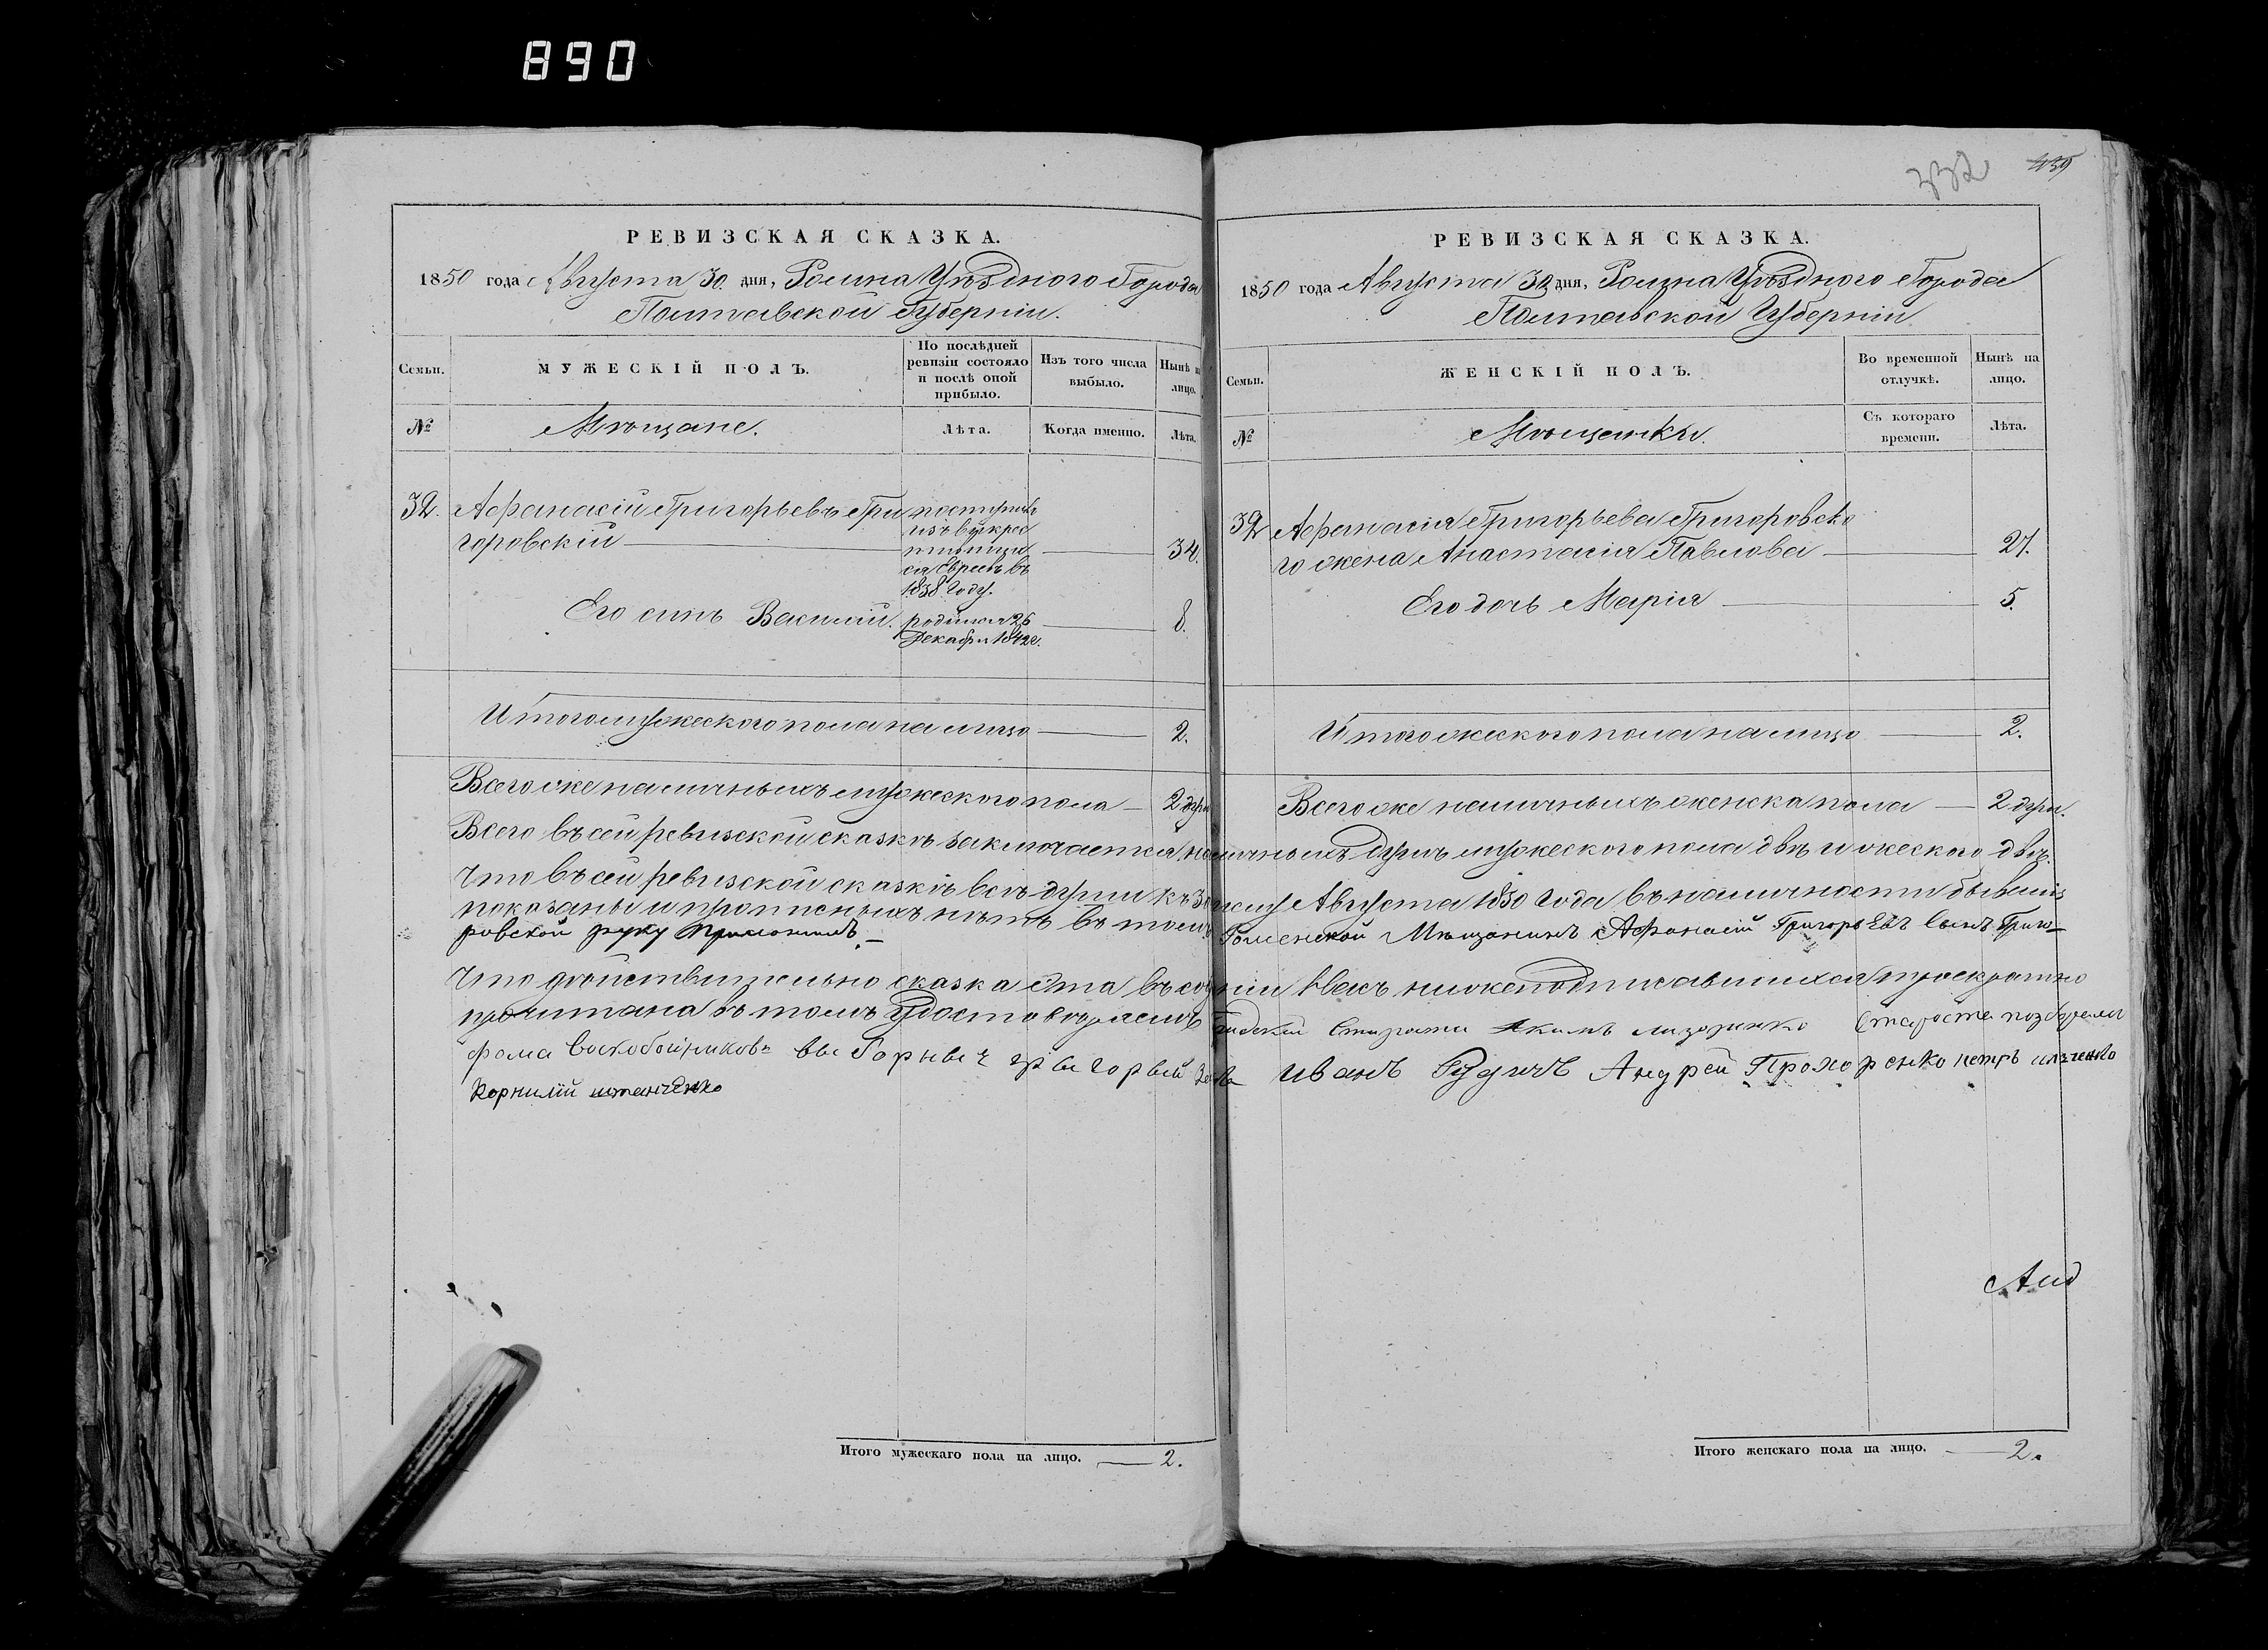 890
332
439
РЕВИЗСКАЯ СКАЗКА.
1850 года Августа 30. дня, Ромна Уѣзднаго Города
Полтавской Губерніи.
Семьи.
МУЖЕСКІЙ ПОЛЪ.
По послѣдней ревизіи состояло и послѣ оной прибыло.
Изъ того числа выбыло.
Нынѣ на лицо.
№
Мѣщане.
Лѣта.
Когда именно.
Лѣта.
32. Афанасій Григорьевъ Гри
горовскій
34.
изъ
Евреевъ въ
1838 году.
Его сынъ Василій. родился 26 8.
Декабря 1842 г.
Итого мужескаго пола на лицо 2.
Всего же наличныхъ мужескаго пола — 2 души
РЕВИЗСКАЯ СКАЗКА.
1850 года Августа 30 дня, Ромна Уѣзднаго Города
Полтавской Губерніи
Семьи.
ЖЕНСКІЙ ПОЛЪ.
Во временной отлучкѣ.
Нынѣ на лицо.
№
Мѣщанки.
Съ котораго времени.
Лѣта.
32 Афанасія Григорьева Григоровска
го жена Анастасія Павлова 27.
Его дочь Марія 5.
Итого женскаго пола на лицо 2.
Всего же наличныхъ женска пола — 2 души.
Всего въ сей ревизской сказкѣ заключается наличныхъ душъ мужескаго пола двѣ и женскаго двѣ.
Что въ сей ревизской сказкѣ всѣ души къ 30 Августа 1850 года въ наличности бывшія
показаны и прописныхъ нѣтъ въ томъ Роменской Мѣщанинъ Афанасій Григорьевъ сынъ Григо–
ровской руку приложилъ.–
Что дѣйствительно сказка ета въ собраніи насъ нижеподписавшихся троекратно
прочитана въ томъ удостовѣряемъ
фома Воскобойниковъ Иванъ Рудичъ Андрей Прохоренко петръ
Корнилій
Итого мужескаго пола на лицо. 2.
Итого женскаго пола на лицо. 2.